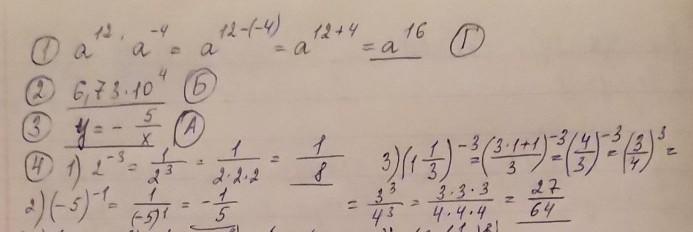 ① a¹² · a⁻⁴ = a¹²⁻⁽⁻⁴⁾ = a¹²⁺⁴ = a¹⁶ Ⓖ
② 6,73·10⁴ Ⓑ
③ y = - 5/x Ⓐ
④ 1) 2⁻³ = 1/2³ = 1/(2·2·2) = 1/8 3) (1 1/3)⁻³ = ((3·1+1)/3)⁻³ = (4/3)⁻³ = (3/4)³ =
2) (-5)⁻¹ = 1/(-5)¹ = -1/5 = 3³/4³ = (3·3·3)/(4·4·4) = 27/64